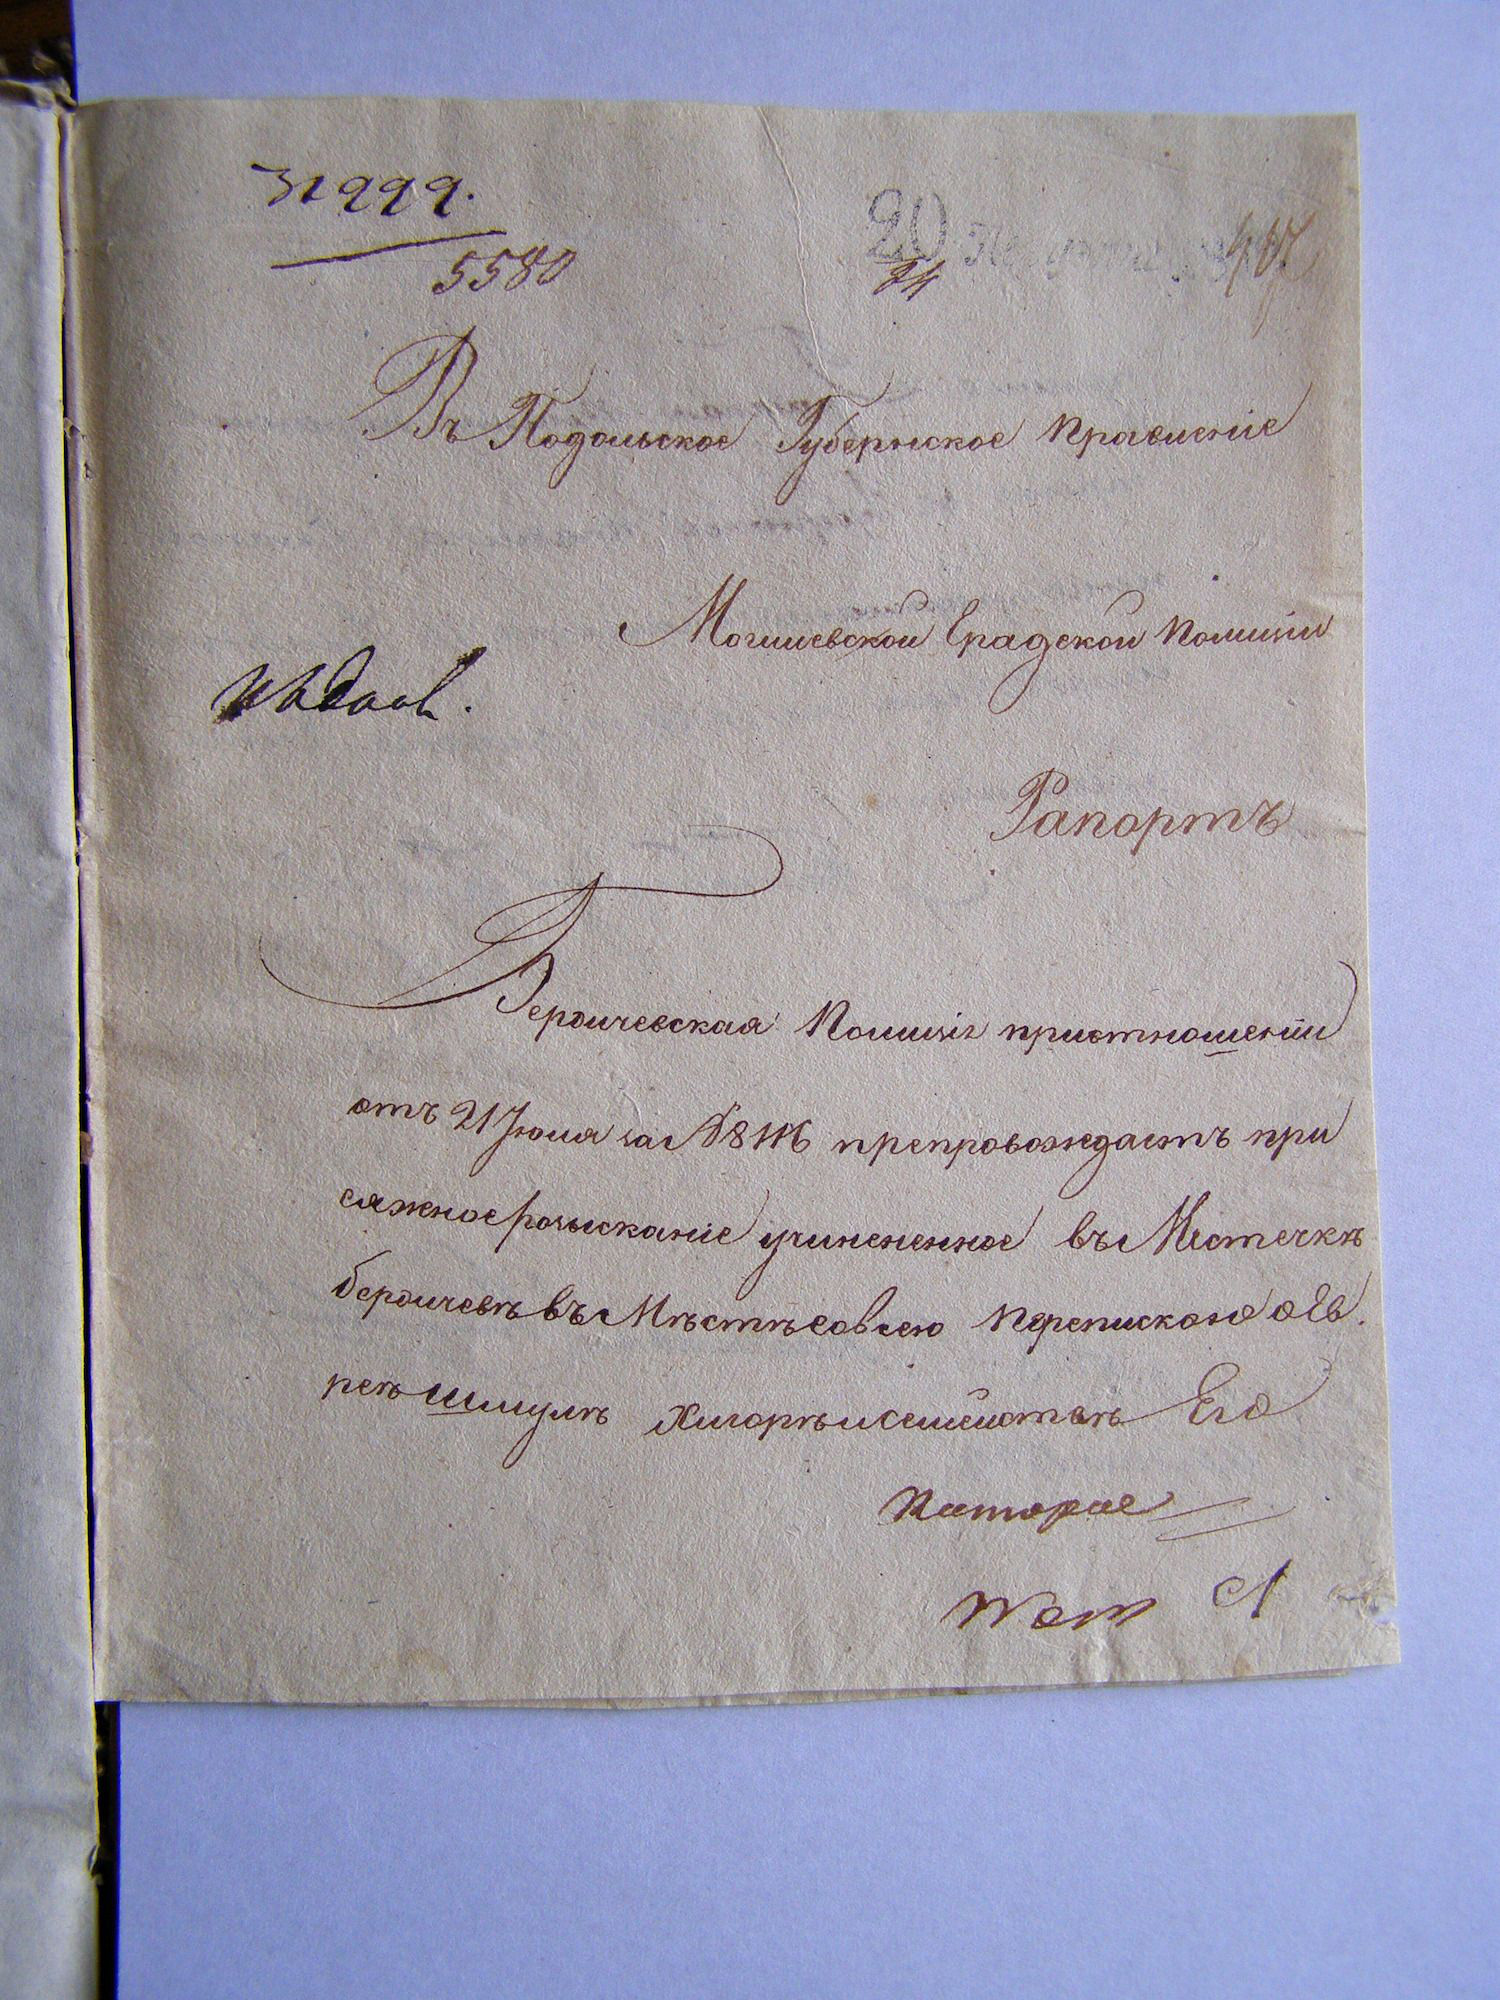 31999.
5580
20
24
Въ Подольское Губернское Правленіе
Могилевской Градской Полиціи
Рапортъ
Бердичевская Полиція приотношеніи
отъ 21 Іюля за № 8116 препровождаетъ при
сяжное розысканіе учиненное въ Местечкѣ
бердичевѣ въ Мѣстѣ совсею Перепискою о Ев
реѣ Шмулѣ Хигорѣ и семействѣ Его
Которое